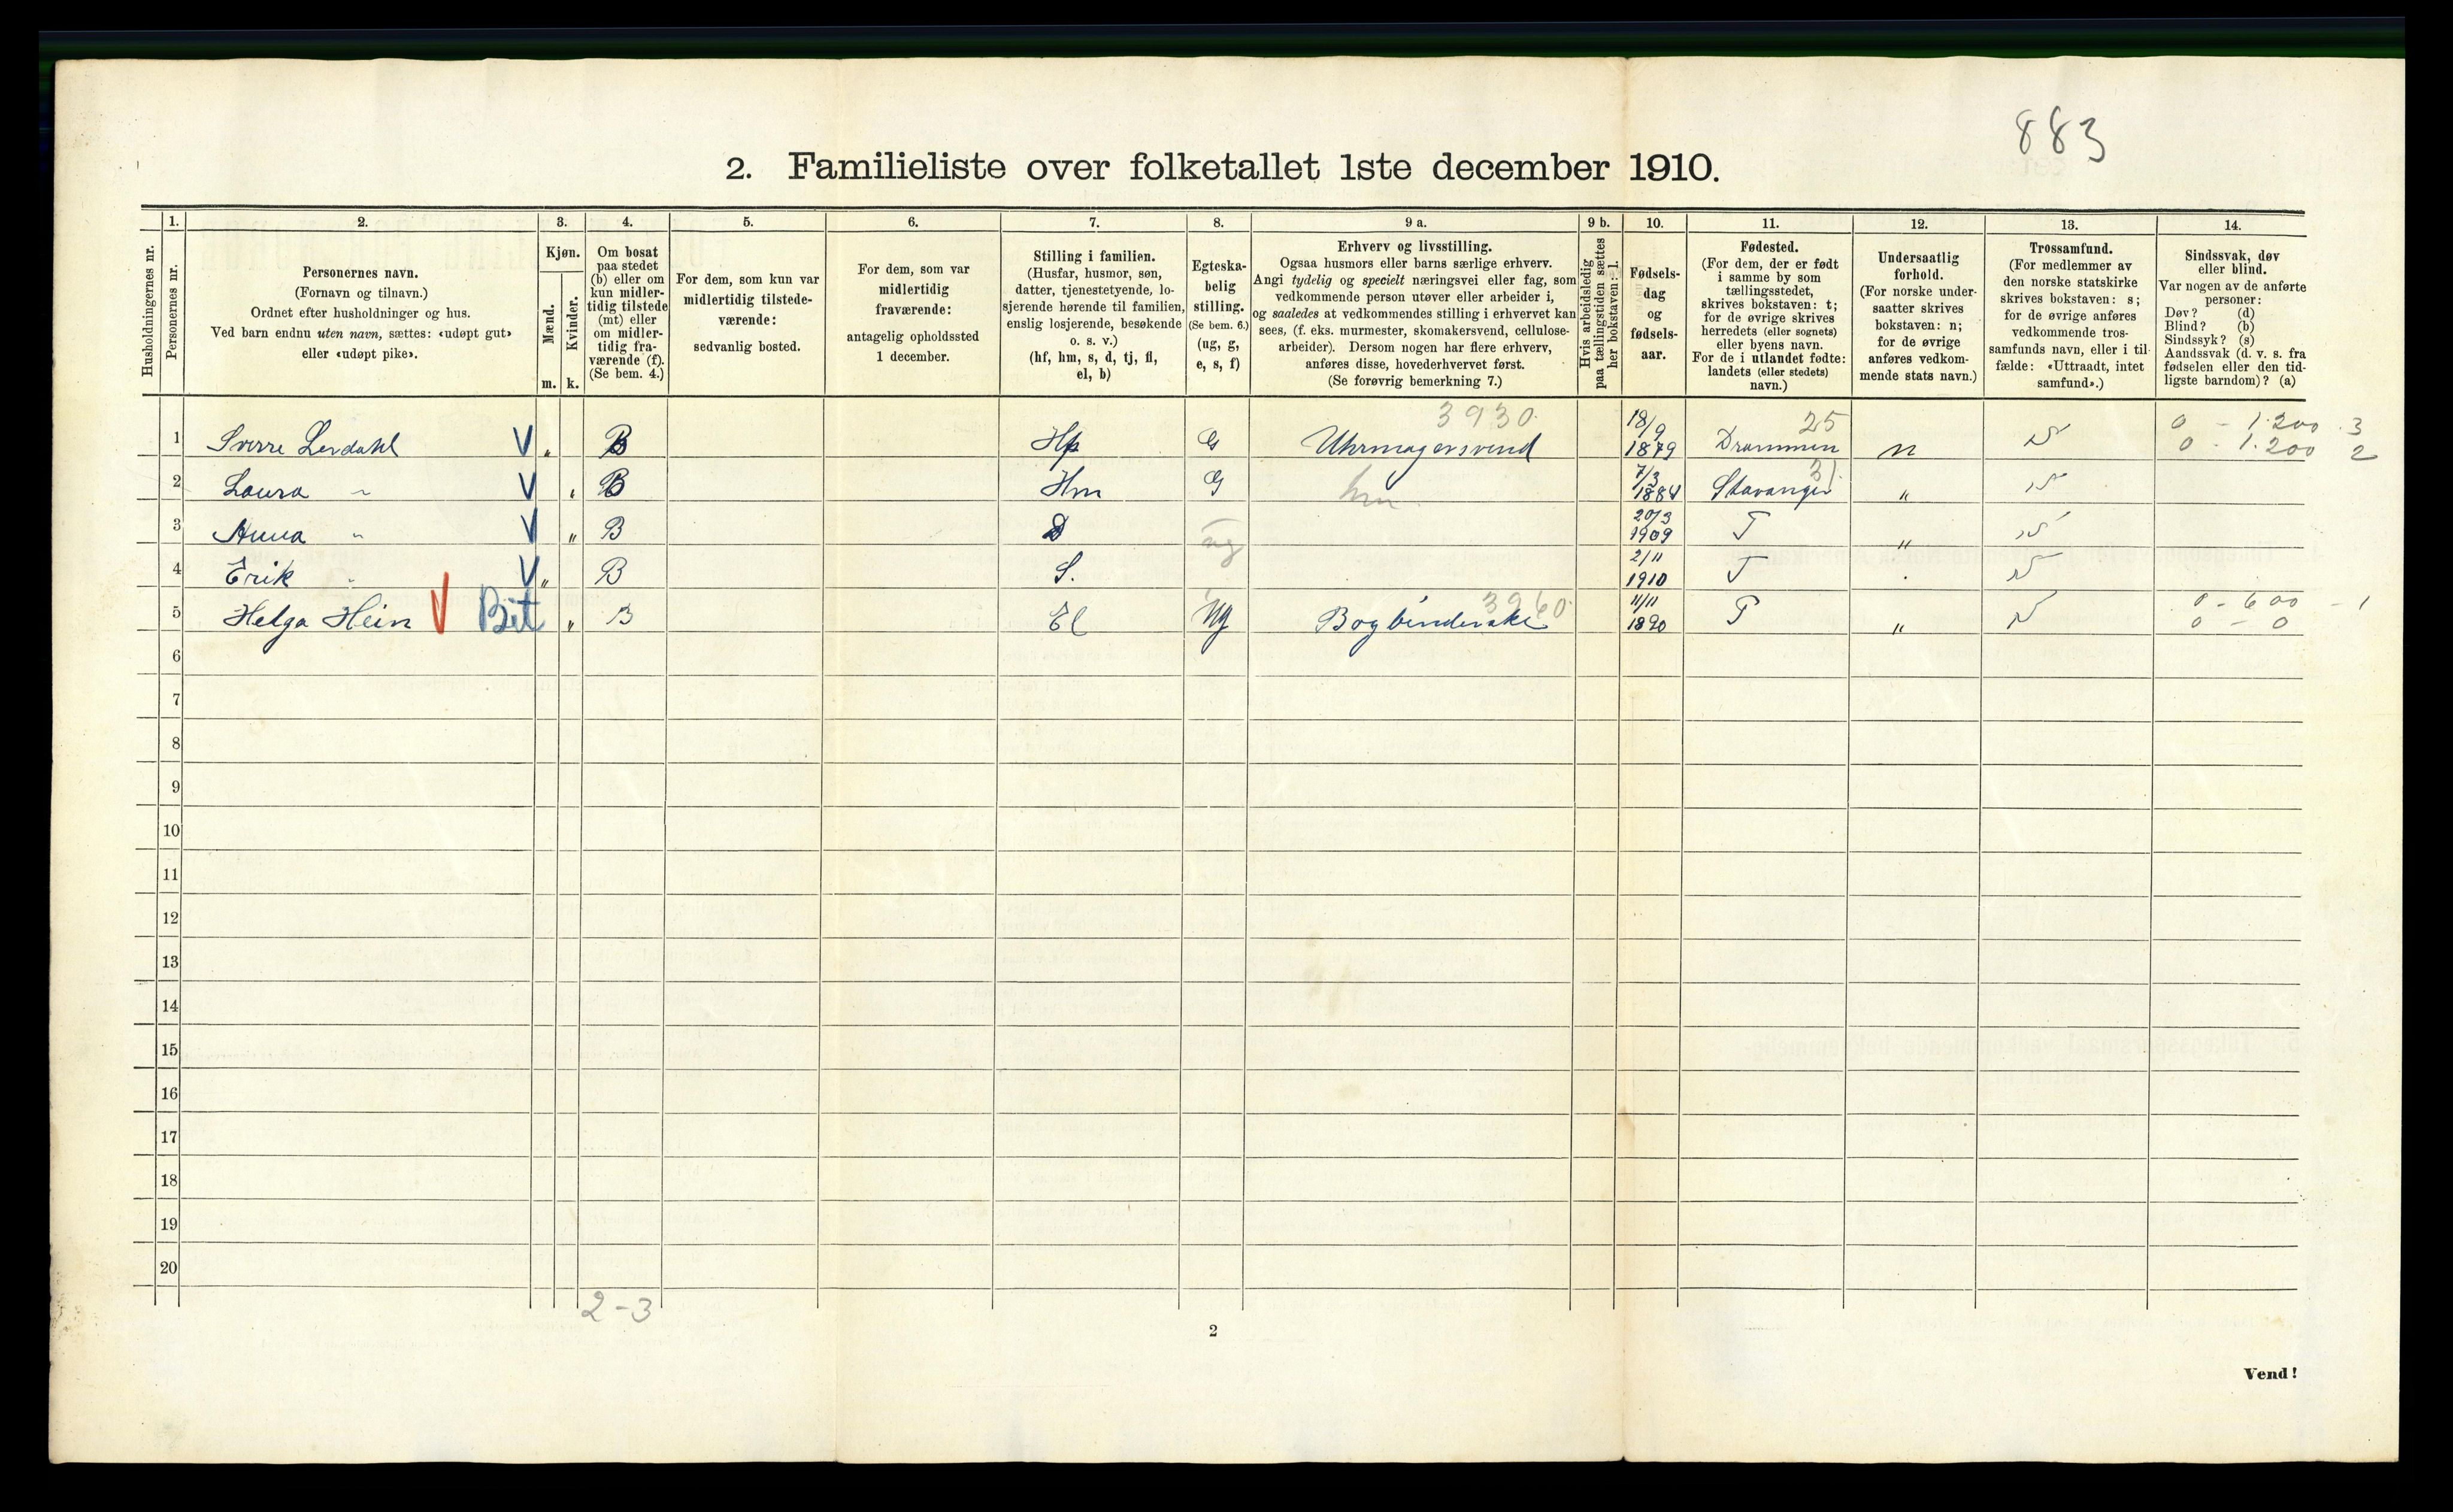 883
2. Familieliste over folketallet 1ste december 1910.
Husholdningernes nr.
1.
Personernes nr.
2.
Personernes navn.
(Fornavn og tilnavn.)
Ordnet efter husholdninger og hus.
Ved barn endnu uten navn, sættes: «udøpt gut»
eller «udøpt pike».
3.
Kjøn.
Mænd.
m.
Kvinder.
k.
4.
Om bosat
paa stedet
(b) eller om
kun midler-
tidig tilstede
(mt) eller
om midler-
tidig fra-
værende (f).
(Se bem. 4.)
5.
For dem, som kun var
midlertidig tilstede-
værende:
sedvanlig bosted.
6.
For dem, som var
midlertidig
fraværende:
antagelig opholdssted
1 december.
7.
Stilling i familien.
(Husfar, husmor, søn,
datter, tjenestetyende, lo-
sjerende hørende til familien,
enslig losjerende, besøkende
o. s. v.)
(hf, hm, s, d, tj, fl,
el, b)
8.
Egteska-
belig
stilling.
(Se bem. 6.)
(ug, g,
e, s, f)
9 a.
Erhverv og livsstilling.
Ogsaa husmors eller barns særlige erhverv.
Angi tydelig og specielt næringsvei eller fag, som
vedkommende person utøver eller arbeider i,
og saaledes at vedkommendes stilling i erhvervet kan
sees, (f. eks. murmester, skomakersvend, cellulose-
arbeider). Dersom nogen har flere erhverv,
anføres disse, hovederhvervet først.
(Se forøvrig bemerkning 7.)
9 b.
Hvis arbeidsledig
paa tællingstiden sættes
her bokstaven: l.
10.
Fødsels-
dag
og
fødsels-
aar.
11.
Fødested.
(For dem, der er født
i samme by som
tællingsstedet,
skrives bokstaven: t;
for de øvrige skrives
herredets (eller sognets)
eller byens navn.
For de i utlandet fødte:
landets (eller stedets)
navn.)
12.
Undersaatlig
forhold.
(For norske under-
saatter skrives
bokstaven: n;
for de øvrige
anføres vedkom-
mende stats navn.)
13.
Trossamfund.
(For medlemmer av
den norske statskirke
skrives bokstaven: s;
for de øvrige anføres
vedkommende tros-
samfunds navn, eller i til-
fælde: «Uttraadt, intet
samfund».)
14.
Sindssvak, døv
eller blind.
Var nogen av de anførte
personer:
Døv? (d)
Blind? (b)
Sindssyk? (s)
Aandssvak (d. v. s. fra
fødselen eller den tid-
ligste barndom)? (a)
3930 18/9 25 0 - 1.200 . 3
1 Sverre Lerdahl V " B Hf G Uhrmagersvend 1879 Drammen n 0 - 1.200 2
7/3 31
2 Laura " V " B Hm G hm 1884 Stavanger "
20/3
3 Anna " V " B D ug 1909 T "
2/11
4 Erik " V " B S. 1910 T "
3960 11/11 0 - 600 - 1
5 Helga Hein V Bit " B El Ug Bogbinderske 1890 T " 0 - 0
6
7
8
9
10
11
12
13
14
15
16
17
18
19
20
2-3
2
Vend!